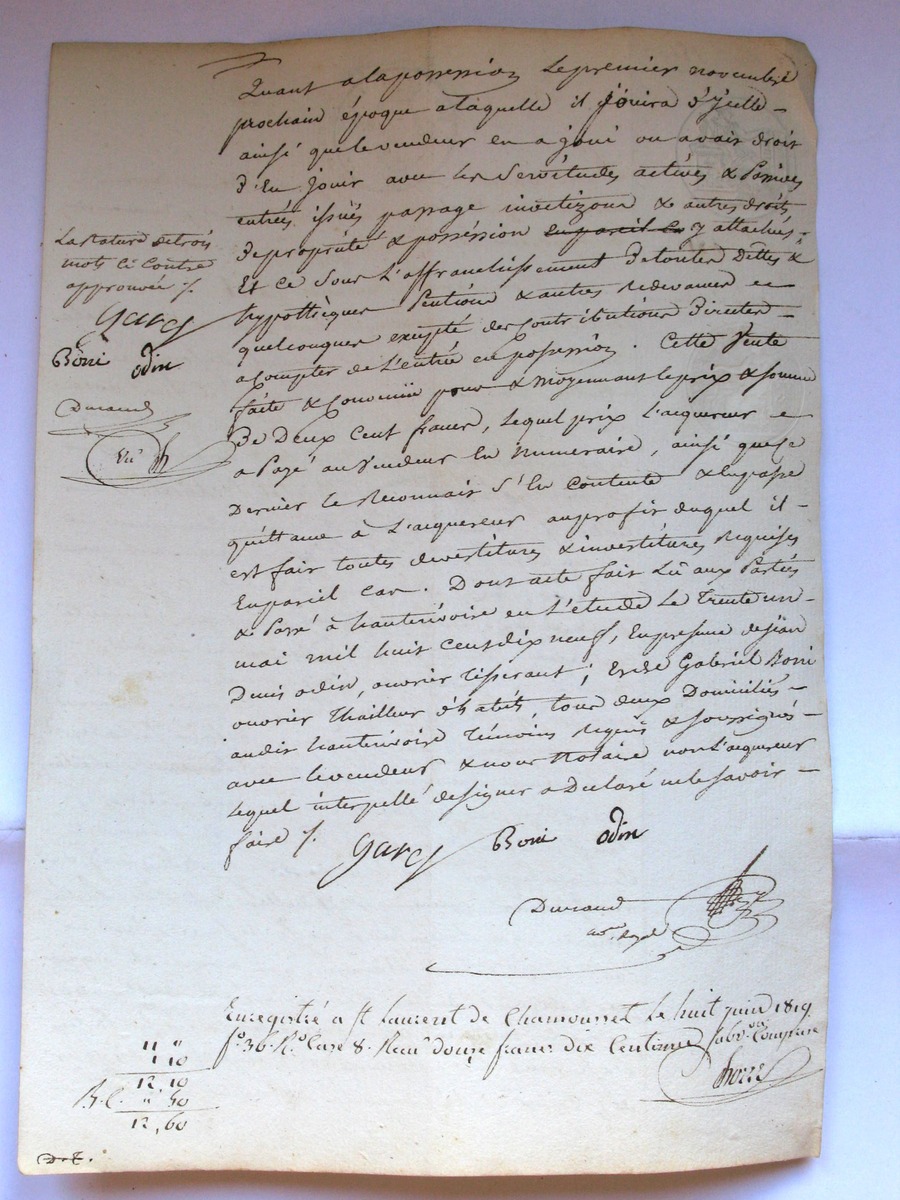 Quant a la possession Le premier novembre
prochain époque a laquelle il jouira d'Ycelle
ainsi que le vendeur en a joui ou avait droit
d'En Jouir avec les Servitudes actives & Passives
entrées issües passage & autres droits
de propriété & possession en pareil cas y attachés.
Et ce Sous L'affranchissement de toutes Dettes &
hypothèques & autres redevances
quelconques excepté des Contributions Directes
a Compter de L'entrée en possession. Cette Vente
faite & Convenüe pour & moyennant le prix & somme
De Deux Cent francs, Lequel prix L'aquereur
a Payé au Vendeur En Numeraire, ainsi que ce
Dernier le Reconnait S'En Contente & En passe
quittance à L'aquereur au profit duquel il
est fait toutes devestitures & investitures Requises
En pareil cas. Dont acte fait Lû aux Parties
& Passé à hauterivoire en L'étude Le Trente un
mai mil huit Cent dix neuf, En presence de jean
Denis odin, ouvrier Tisserant; Et de Gabriel Boni
ouvrier Thailleur d'habits tous deux Domiciliés
audit hauterivoire Témoins Requis & soussignés
avec le vendeur & nous Notaire non L'aquereur
Lequel interpellé de signer a Declaré ne le savoir
faire /.
La rature de trois
mots Ci Contre
approuvée /.
Garcy
Boni odin
Durand
Garcy Boni odin
Durand
Enregistré a St Laurent de Chamousset Le huit juin 1819
fo 36 Ro Case 8. Recu douze francs dix Centimes Subvon Comprise
11 "
1 10
12, 10
" 50
12, 60